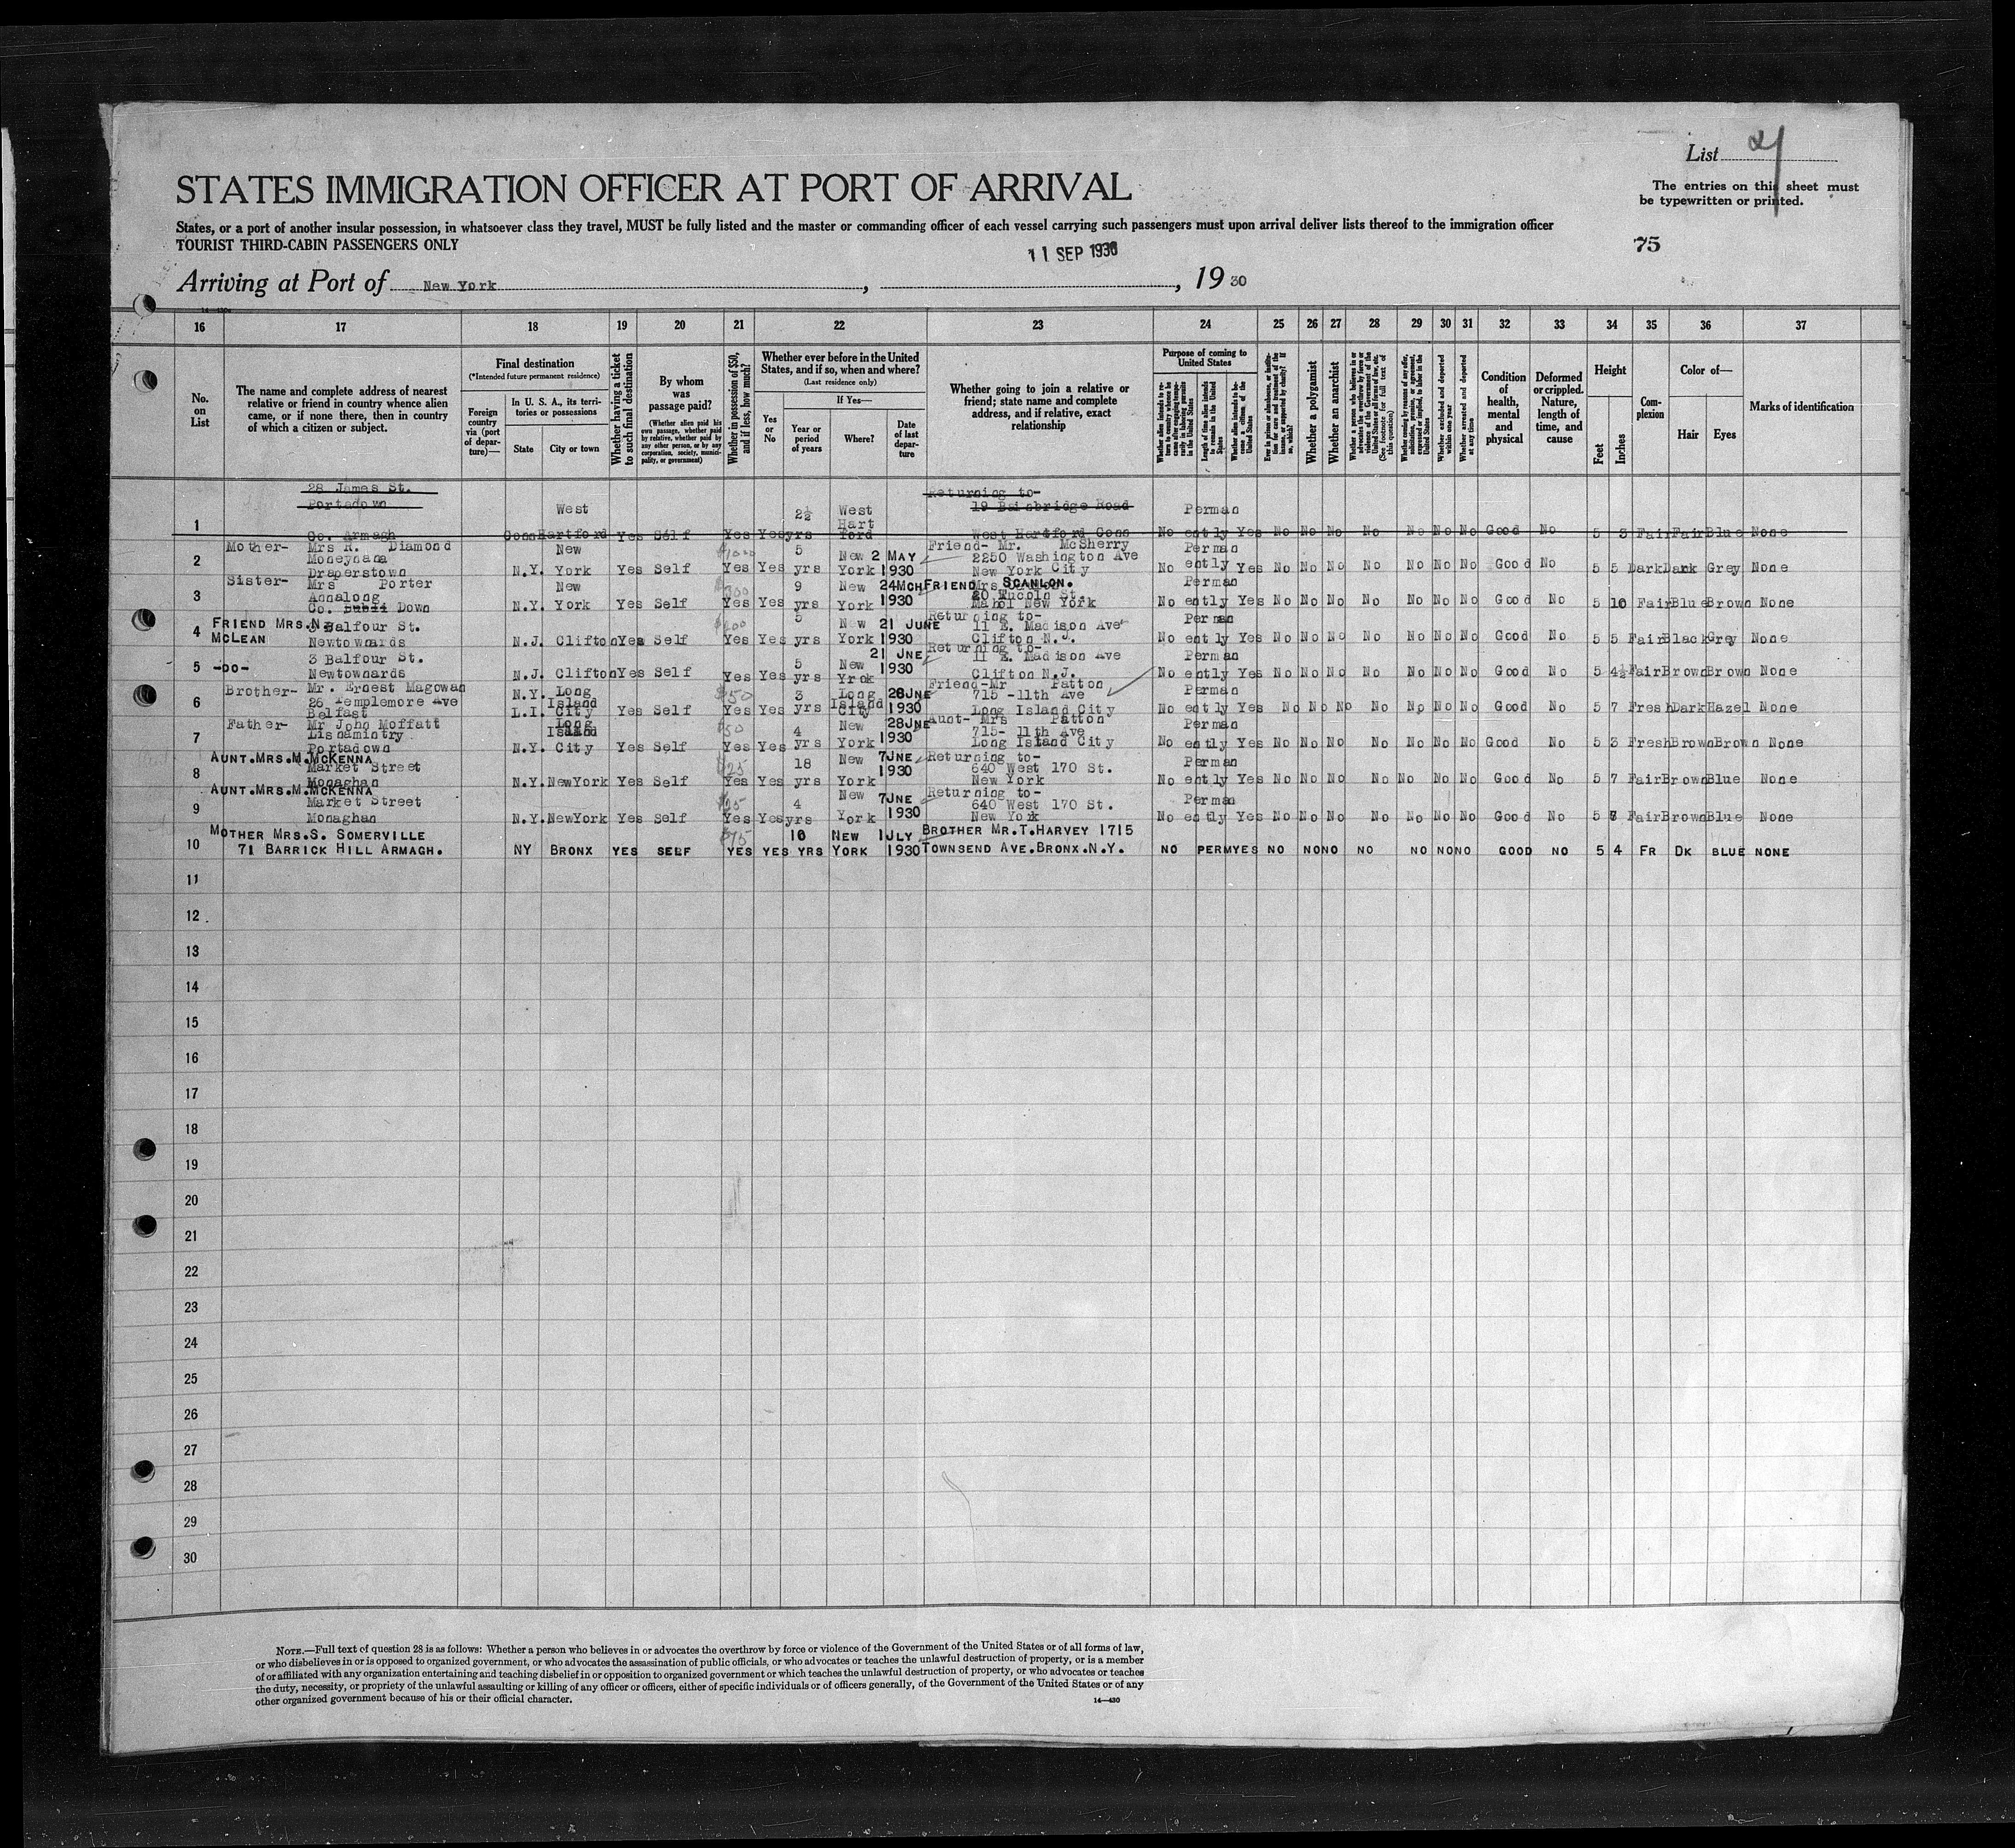 List 21
STATES IMMIGRATION OFFICER AT PORT OF ARRIVAL
The entries on this sheet must
be typewritten or printed.
States, or a port of another insular possession, in whatsoever class they travel, MUST be fully listed and the master or commanding officer of each vessel carrying such passengers must upon arrival deliver lists thereof to the immigration officer
TOURIST THIRD-CABIN PASSENGERS ONLY
75
11 SEP 1930
Arriving at Port of New York, , 19 30
16 17 18 19 20 21 22 23 24 25 26 27 28 29 30 31 32 33 34 35 36 37
No. on List
The name and complete address of nearest relative or friend in country whence alien came, or if none there, then in country of which a citizen or subject.
Final destination
(*Intended future permanent residence)
Foreign country via (port of departure)—
In U. S. A., its territories or possessions
State
City or town
Whether having a ticket to such final destination
By whom was passage paid?
(Whether alien paid his own passage, whether paid by relative, whether paid by any other person, or by any corporation, society, municipality, or government)
Whether in possession of $50, and if less, how much?
Whether ever before in the United States, and if so, when and where?
(Last residence only)
Yes or No
If Yes—
Year or period of years
Where?
Date of last departure
Whether going to join a relative or friend; state name and complete address, and if relative, exact relationship
Purpose of coming to United States
Whether alien intends to return to country whence he came after engaging temporarily in laboring pursuits in the United States
Length of time alien intends to remain in the United States
Whether alien intends to become a citizen of the United States
Ever in prison or almshouse, or institution for care and treatment of the insane, or supported by charity? If so, which?
Whether a polygamist
Whether an anarchist
Whether a person who believes in or advocates the overthrow by force or violence of the Government of the United States or all forms of law, etc. (See footnote for full text of this question)
Whether coming by reason of any offer, solicitation, promise, or agreement, expressed or implied, to labor in the United States
Whether excluded and deported within one year
Whether arrested and deported at any time
Condition of health, mental and physical
Deformed or crippled. Nature, length of time, and cause
Height
Feet
Inches
Complexion
Color of—
Hair
Eyes
Marks of identification
1 28 James St. Portadown Co. Armagh Conn West Hartford Yes Self Yes Yes 2½ yrs West Hart ford Returning to- 19 Bainbridge Road West Hartford Conn No Perman ently Yes No No No No No No No Good No 5 3 Fair Fair Blue None
2 Mother- Mrs R. Diamond Moneynana Draperstown N.Y. New York Yes Self $1000 Yes Yes 5 yrs New York 2 MAY 1930 Friend- Mr. McSherry 2250 Washington Ave New York City No Perman ently Yes No No No No No No No Good No 5 5 Dark Dark Grey None
3 Sister- Mrs Porter Annalong Co. Down N.Y. New York Yes Self Yes Yes 9 yrs New York 24MCH 1930 FRIEND Mrs SCANLON. 20 Lincoln St. New York No Perman ently Yes No No No No No No No Good No 5 10 Fair Blue Brown None
4 FRIEND MRS.N. MCLEAN 3 Balfour St. Newtownards N.J. Clifton Yes Self $200 Yes Yes 5 yrs New York 21 JUNE 1930 Returning to- 11 E. Madison Ave Clifton N.J. No Perman ently Yes No No No No No No No Good No 5 5 Fair Black Grey None
5 -DO- 3 Balfour St. Newtownards N.J. Clifton Yes Self Yes Yes 5 yrs New Yrok 21 JNE 1930 Returning to- 11 E. Madison Ave Clifton N.J. No Perman ently Yes No No No No No No No Good No 5 4½ Fair Brown Brown None
6 Brother- Mr. Ernest Magowan 26 Templemore Ave Belfast N.Y. L.I. Long Island City Yes Self $50 Yes Yes 3 yrs Long Island City 28JNE 1930 Friend-Mr Patton 715 -11th Ave Long Island City No Perman ently Yes No No No No No No No Good No 5 7 Fresh Dark Hazel None
7 Father- Mr John Moffatt Lisnamintry Portadown N.Y. Long Island City Yes Self $50 Yes Yes 4 yrs New York 28JNE 1930 Aunt- Mrs Patton 715- 11th Ave Long Island City No Perman ently Yes No No No No No No No Good No 5 3 Fresh Brown Brown None
8 AUNT.MRS.M.MCKENNA Market Street Monaghan N.Y. NewYork Yes Self $25 Yes Yes 18 yrs New York 7JNE 1930 Returning to- 640 West 170 St. New York No Perman ently Yes No No No No No No No Good No 5 7 Fair Brown Blue None
9 AUNT.MRS.M.MCKENNA Market Street Monaghan N.Y. NewYork Yes Self Yes Yes 4 yrs New York 7JNE 1930 Returning to- 640 West 170 St. New York No Perman ently Yes No No No No No No No Good No 5 Fair Brown Blue None
10 MOTHER MRS.S. SOMERVILLE 71 BARRICK HILL ARMAGH. NY BRONX YES SELF $75 YES YES 10 YRS NEW YORK 1JLY 1930 BROTHER MR.T.HARVEY 1715 TOWNSEND AVE.BRONX.N.Y. NO PERM YES NO NO NO NO NO NO NO GOOD NO 5 4 FR DK BLUE NONE
11
12
13
14
15
16
17
18
19
20
21
22
23
24
25
26
27
28
29
30
NOTE.—Full text of question 28 is as follows: Whether a person who believes in or advocates the overthrow by force or violence of the Government of the United States or of all forms of law,
or who disbelieves in or is opposed to organized government, or who advocates the assassination of public officials, or who advocates or teaches the unlawful destruction of property, or is a member
of or affiliated with any organization entertaining and teaching disbelief in or opposition to organized government or which teaches the unlawful destruction of property, or who advocates or teaches
the duty, necessity, or propriety of the unlawful assaulting or killing of any officer or officers, either of specific individuals or of officers generally, of the Government of the United States or of any
other organized government because of his or their official character.
14—430